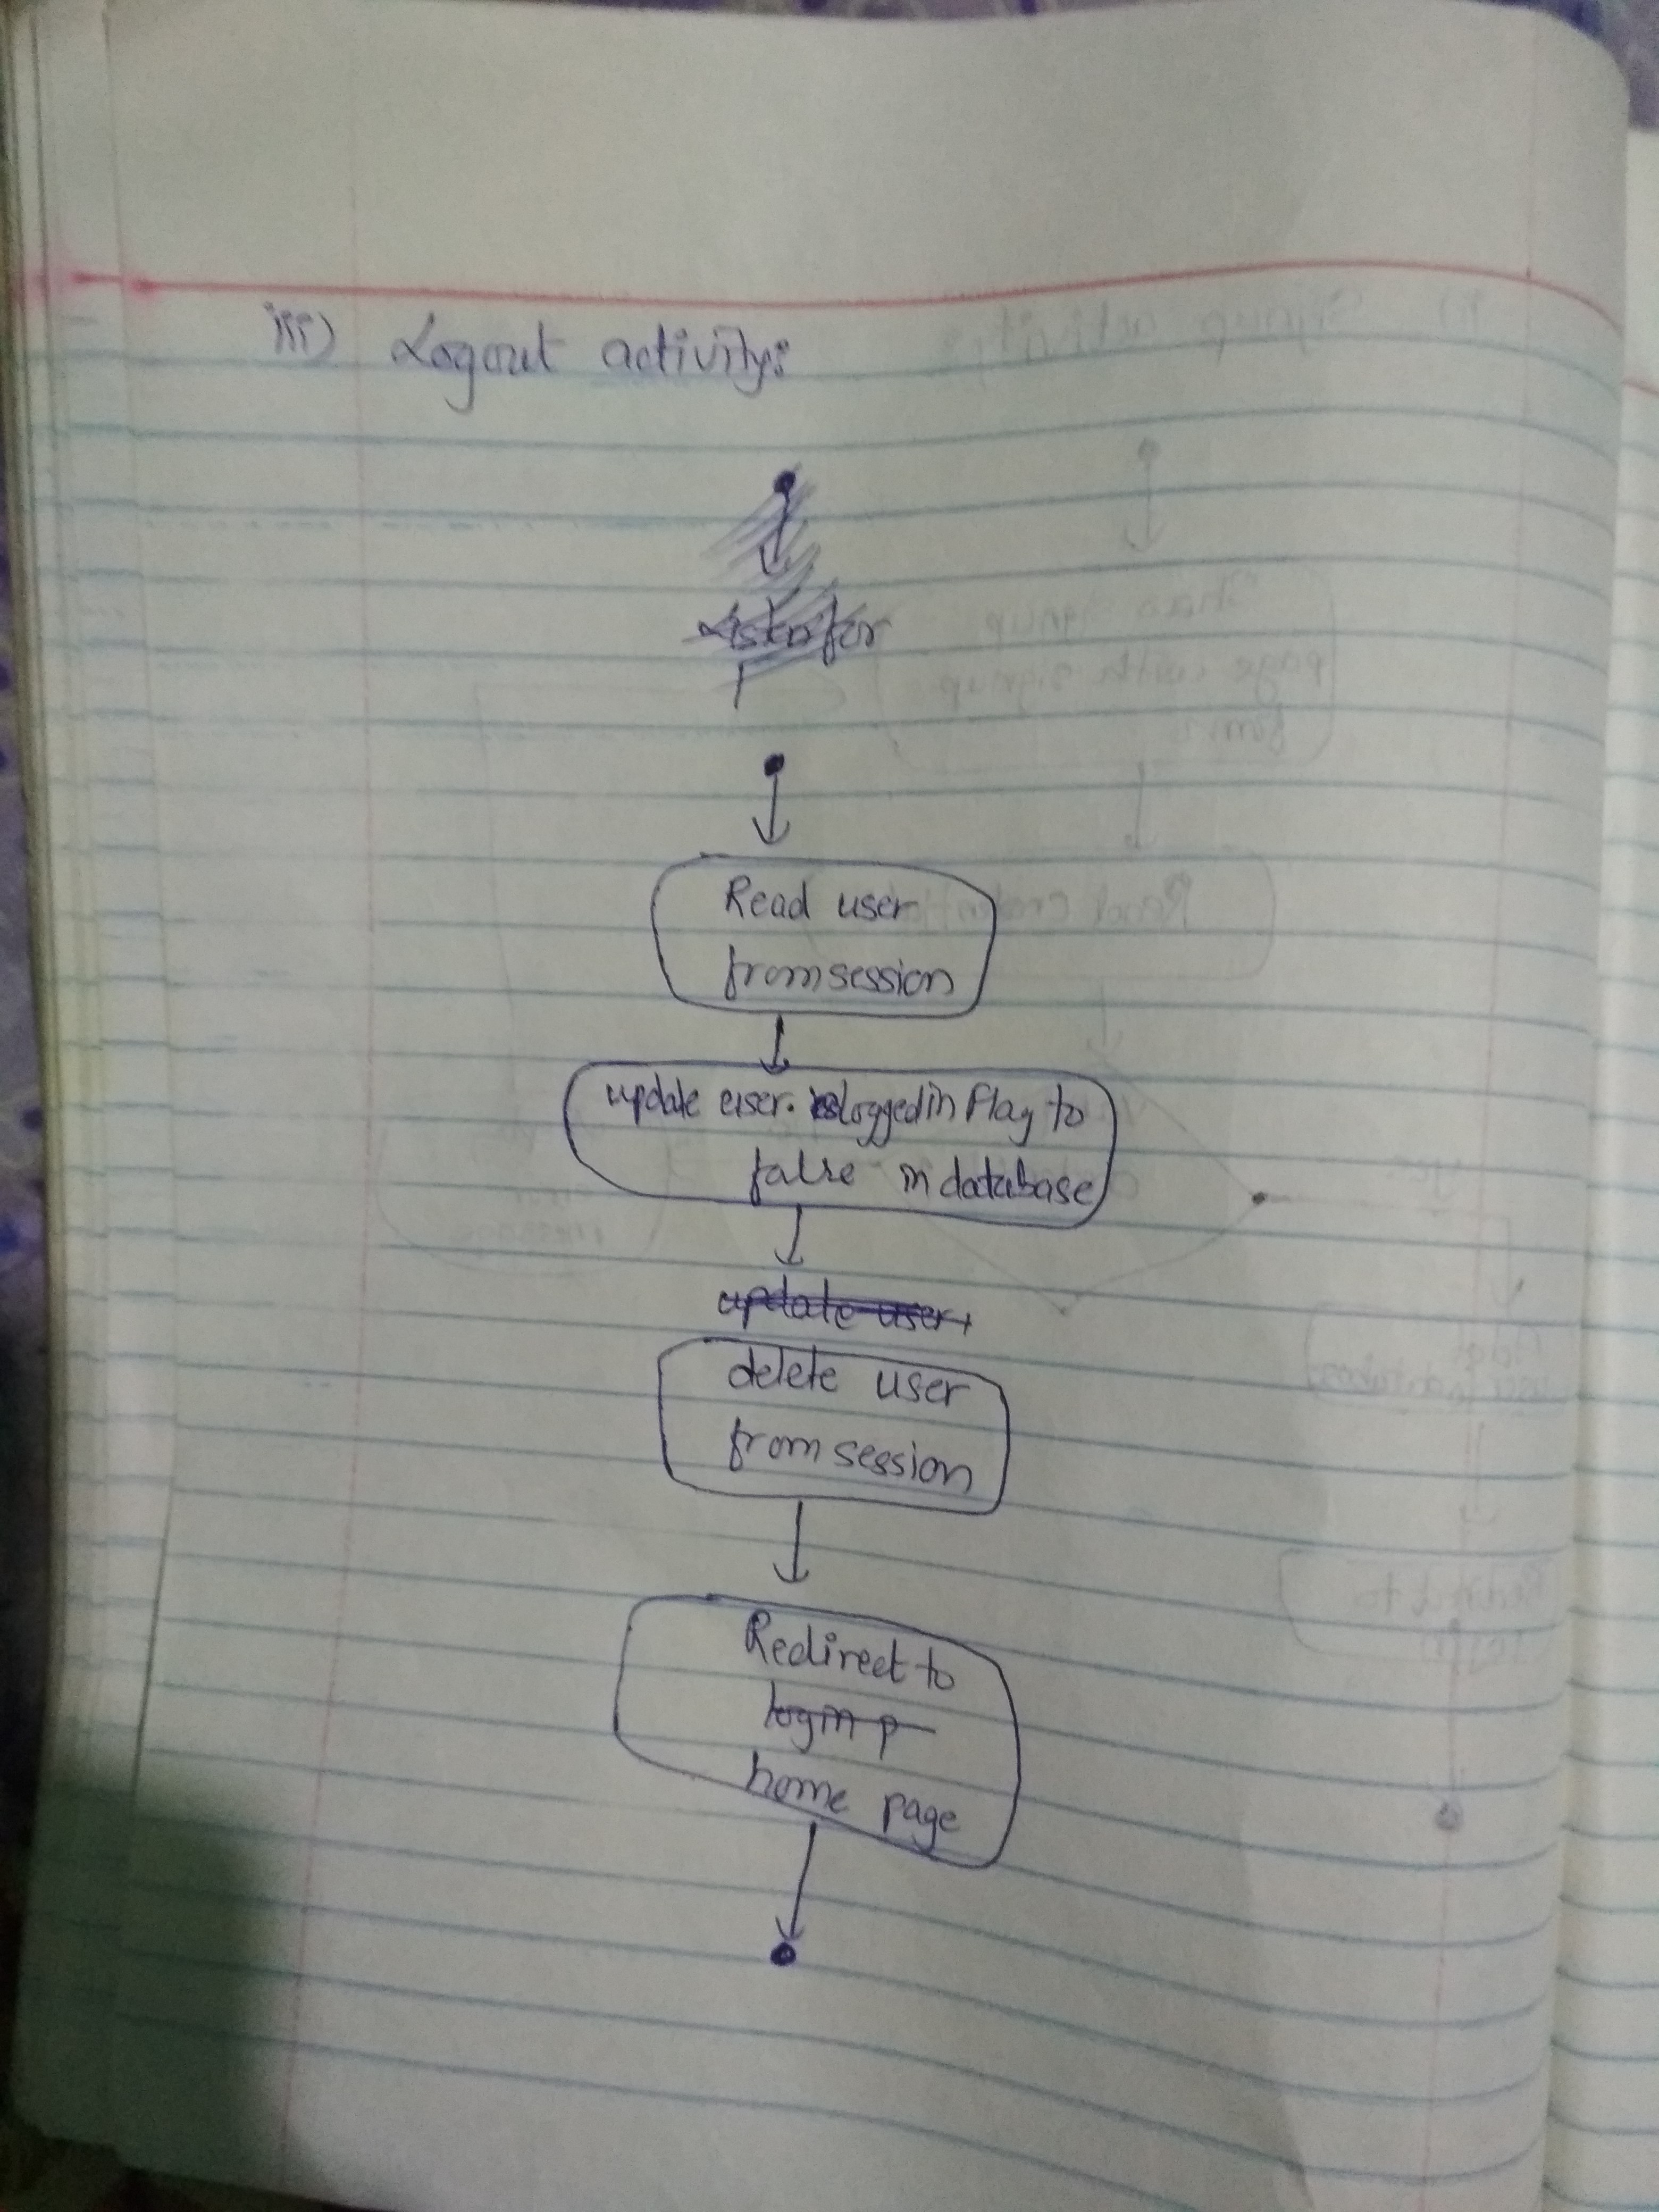 iii) Logout activity:
Listen for
Read user
from session
update user. isloggedin Flag to
false in database
update user.
delete user
from session
Redirect to
login p
home page